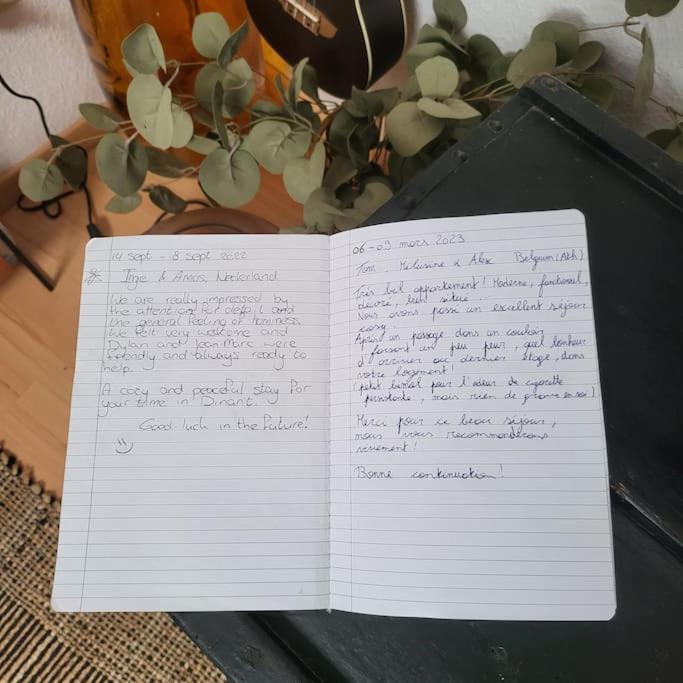 14 Sept - 18 Sept 2022
Inge & Anaas, Nederland
We are really impressed by
the attention for detail and
the general feeling of hominess.
We felt very welcome and
Dylan and Jean-Marc were
friendly and always ready to
help.
A cozy and peaceful stay for
your time in Dinant.
Good luck in the future!
06-09 mars 2023
Tom, Mélusine & Alex Belgium (Ath)
Très bel appartement! Moderne, fonctionnel,
décoré, bien situé.
Nous avons passé un excellent séjour
cosy.
Après un passage dans un couloir
faisant un peu peur, quel bonheur
d'arriver au dernier étage, dans
votre logement!
(petit bémol pour l'odeur de cigarette
persistante, mais rien de grave en soi)
Merci pour ce beau séjour,
nous vous recommanderons
vivement!
Bonne continuation!